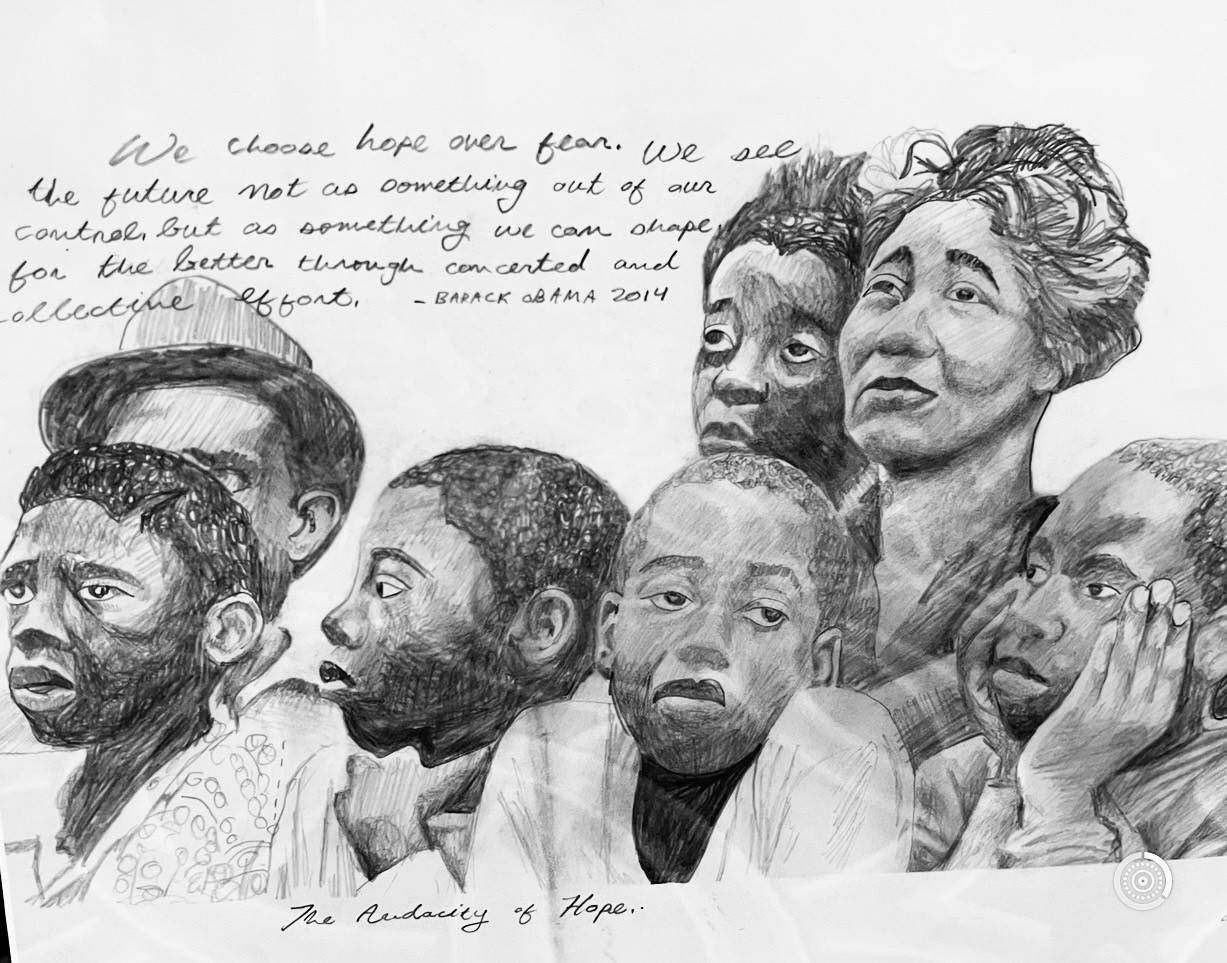 We choose hope over fear. We see
the future not as something out of our
control, but as something we can shape,
for the better through concerted and
collective effort. - BARACK OBAMA 2014
The Audacity of Hope.